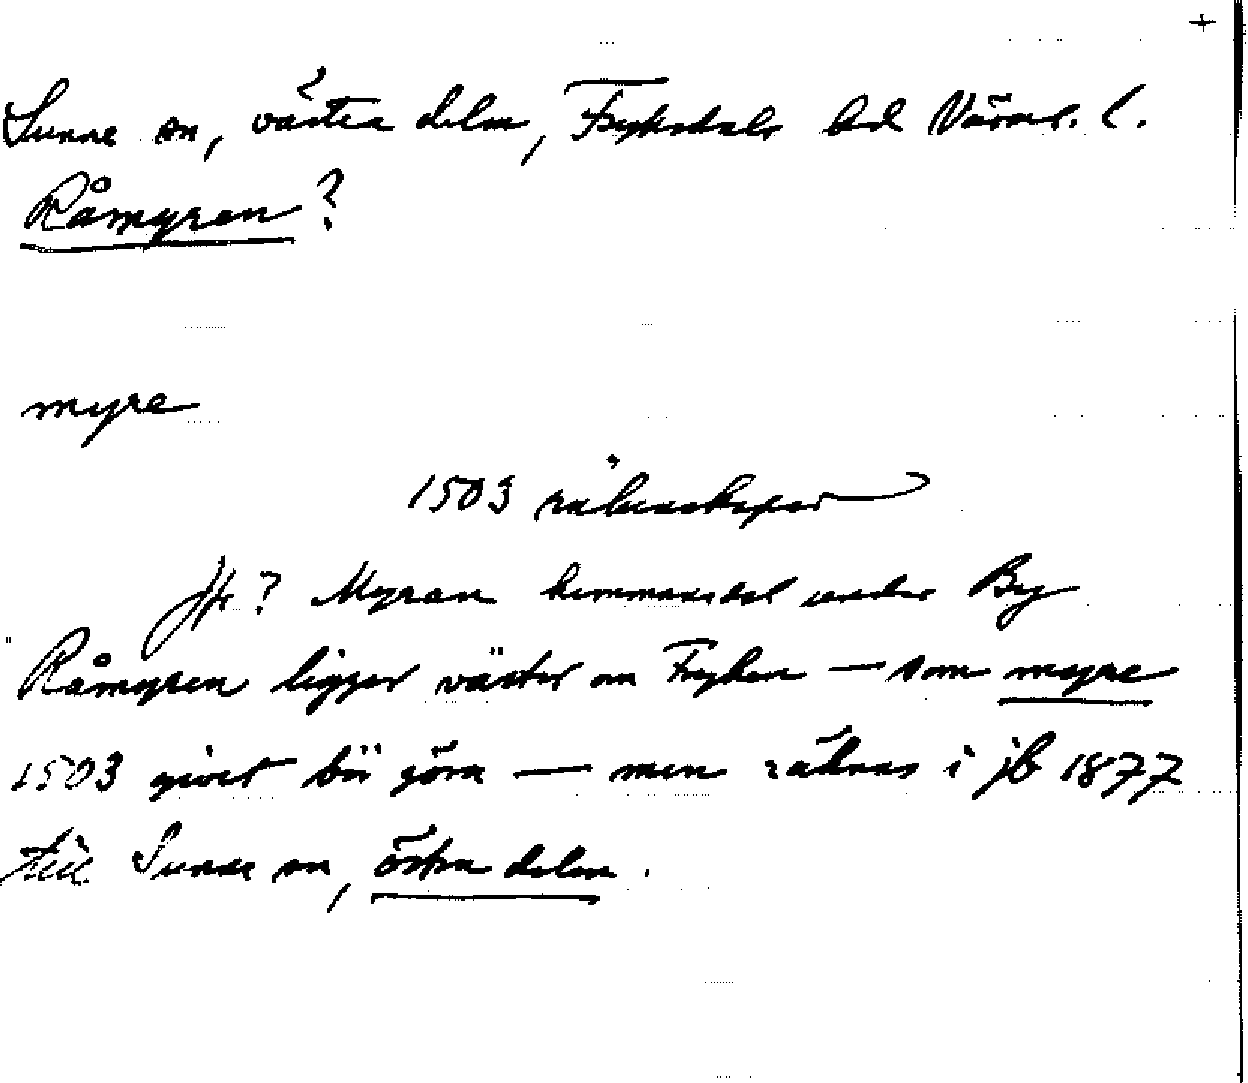 +
Sunne sn, västra delen, Fryksdals hd Värml. l.
Råmyren?
myre
1503 räkenskaper
Jfr? Myran hemmansdel under By
Råmyren ligger väster om Fryken — som myre
1503 givet bör göra — men räknas i jb 1877
till Sunne sn, östra delen.